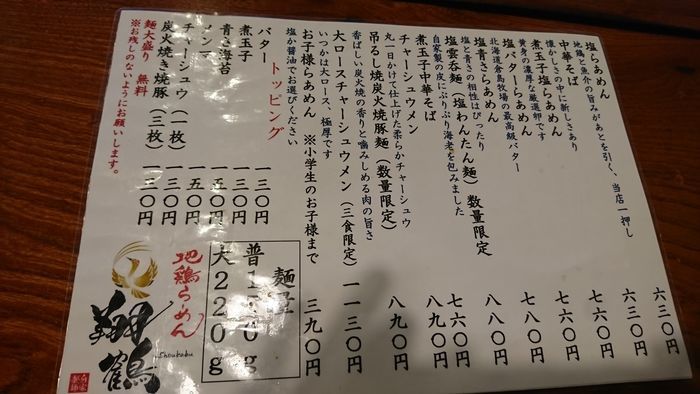 塩らぁめん 六三〇円
地鶏と魚介の旨みがあとを引く、当店一押し
中華そば 六三〇円
懐かしさの中に新しさあり
煮玉子塩らぁめん 七六〇円
黄身の濃厚な厳選卵です
塩バターらぁめん 七六〇円
北海道倉島牧場の最高級バター
塩青さらぁめん 七八〇円
塩と青さの相性はぴったり
塩雲呑麺(塩わんたん麺)数量限定 八八〇円
自家製の皮にぷりぷり海老を包みました
煮玉子中華そば 七六〇円
チャーシュウメン 八九〇円
丸一日かけて仕上げた柔らかチャーシュウ
吊るし焼炭火焼豚麺(数量限定) 八九〇円
香ばしい炭火焼の香りと噛みしめる肉の旨さ
大ロースチャーシュウメン(三食限定) 一一三〇円
いつかは大ロース、極厚です
お子様らぁめん ※小学生のお子様まで 三九〇円
塩か醤油でお選びください
トッピング
バター 一三〇円
煮玉子 一三〇円
青さ海苔 一五〇円
メンマ 一五〇円
チャーシュウ(一枚) 一三〇円
炭火焼き焼豚(三枚) 一三〇円
麺大盛り 無料
※お残しのないようにお願いします。
麺量
普
大220g
地鶏らーめん
翔鶴
Shoukaku